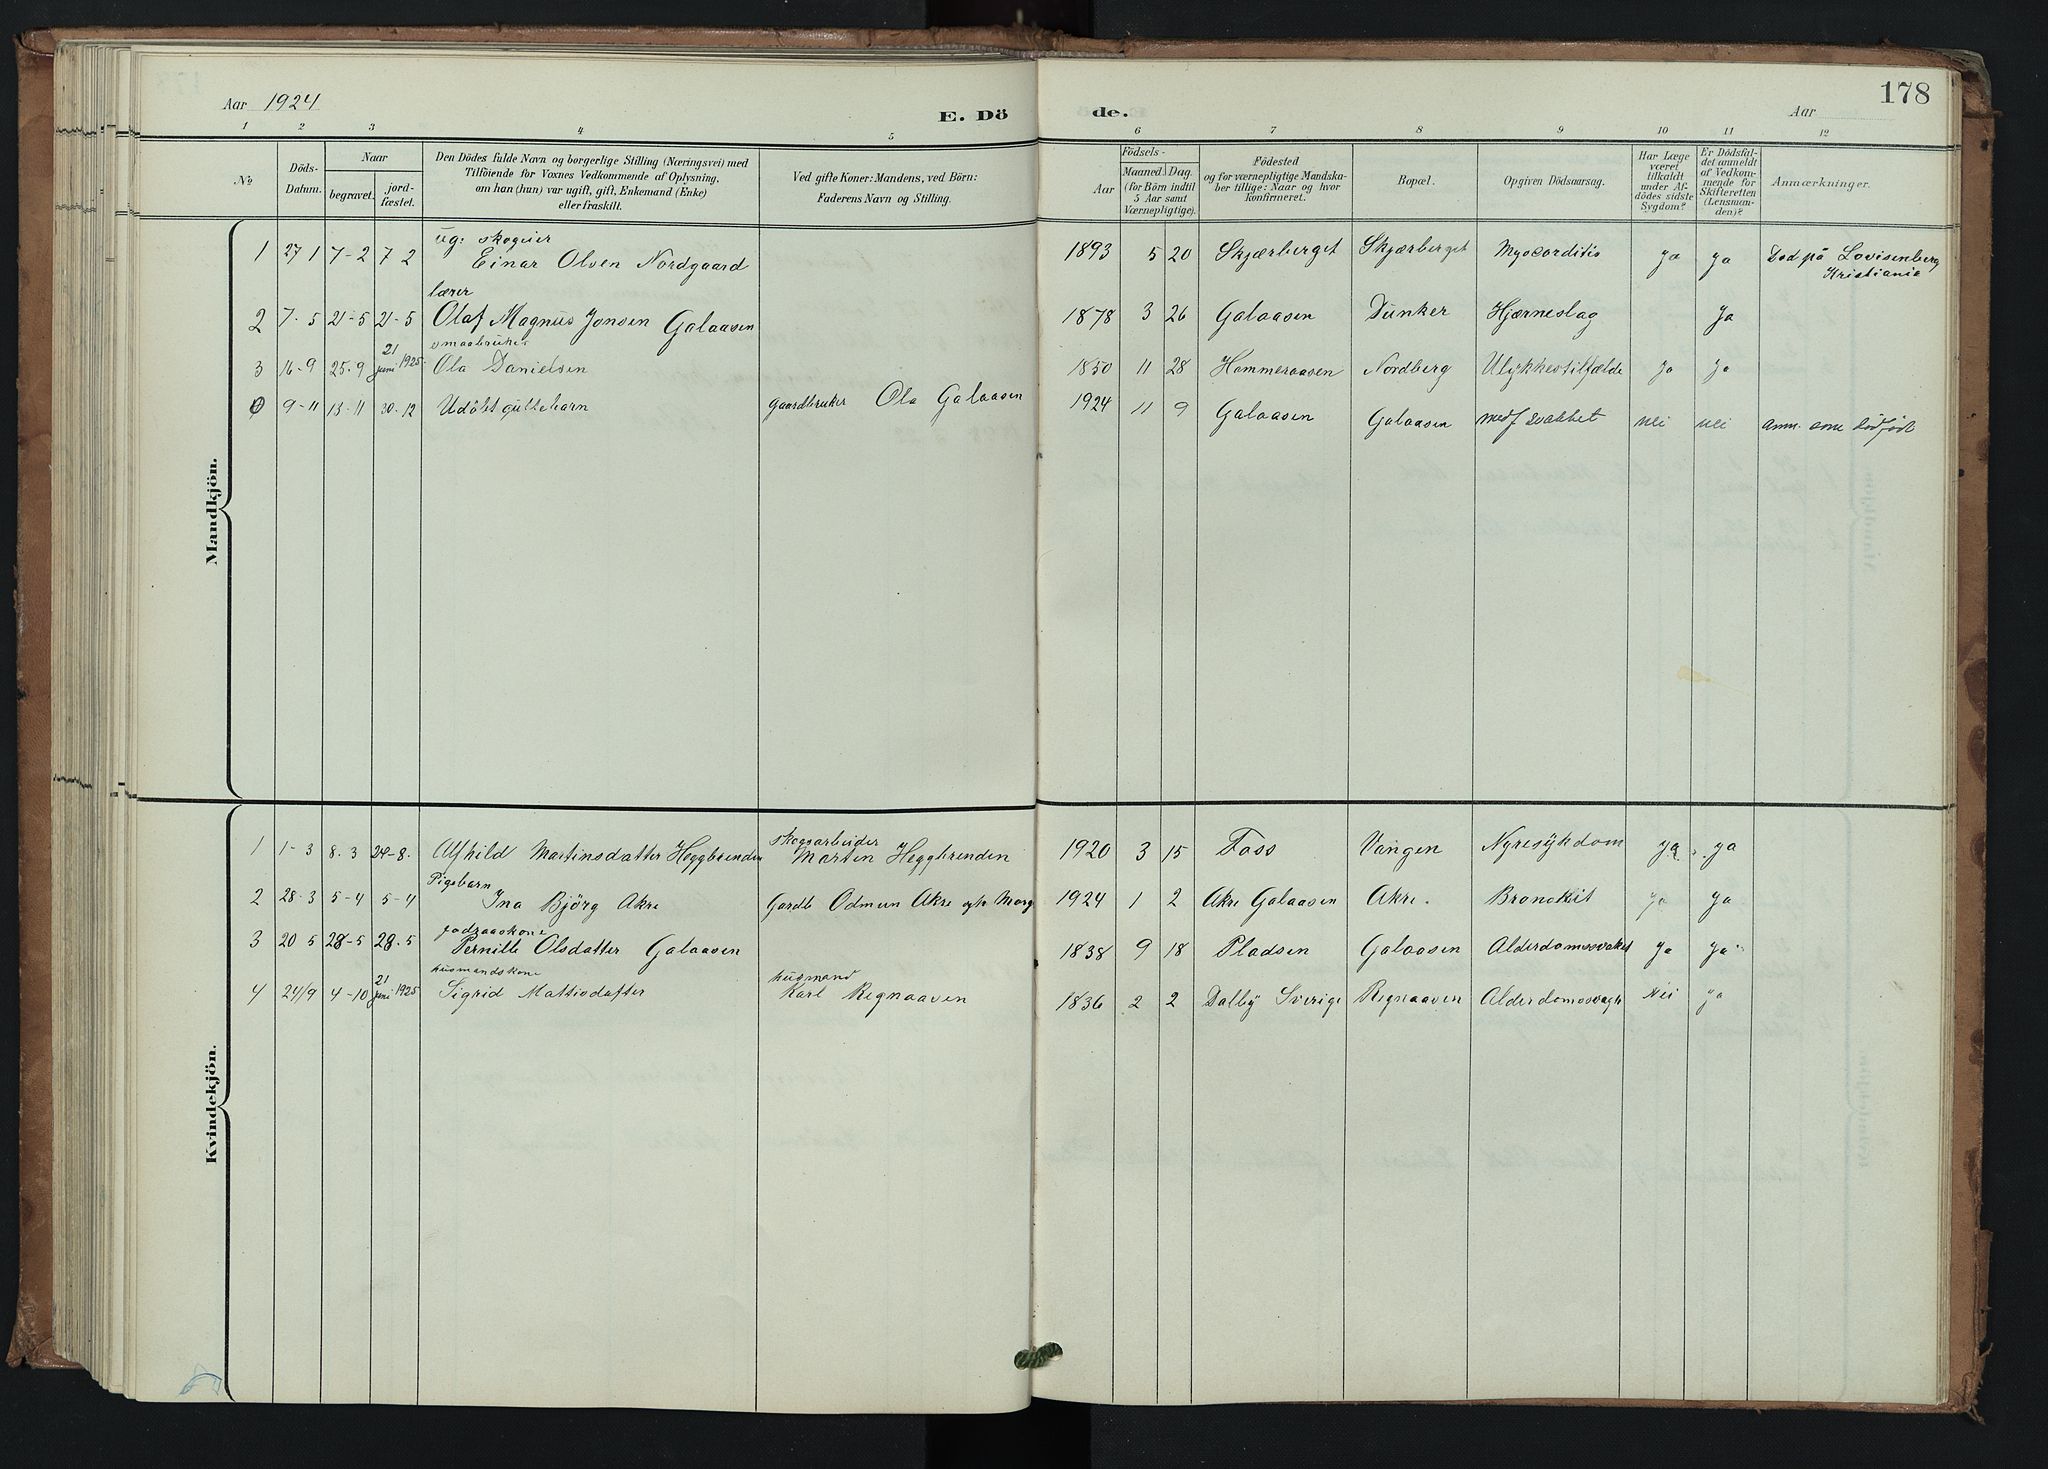 Aar 1924
E. Dö
de.
Aar
178
1 2 3 4 5 6 7 8 9 10 11 12
No
Döds-
Datum.
Naar
begravet.
jord-
fæstet.
Den Dödes fulde Navn og borgerlige Stilling (Næringsvei) med
Tilföiende for Voxnes Vedkommende af Oplysning,
om han (hun) var ugift, gift, Enkemand (Enke)
eller fraskilt.
Ved gifte Koner: Mandens, ved Börn:
Faderens Navn og Stilling.
Födsels-
Aar
Maaned. Dag.
(for Börn indtil
5 Aar samt
Værnepligtige).
Födested
og for værnepligtige Mandska-
ber tillige: Naar og hvor
konfirmeret.
Bopæl.
Opgiven Dödsaarsag.
Har Læge
været
tilkaldt
under Af-
dödes sidste
Sygdom?
Er Dödsfal-
det anmeldt
af Vedkom-
mende for
Skifteretten
(Lensman-
den)?
Anmærkninger.
Mandkjön.
ug: skogeier
1 27 1 7-2 7 2 Einar Olsen Nordgaard 1893 5 20 Skjærberget Skjærberget Myocorditis ja ja Död på Lovisenberg
Kristiania
lærer
2 7-5 21-5 21-5 Olaf Magnus Jonsen Galaasen 1878 3 26 Galaasen Dunker Hjærneslag Ja
smaabruker
3 16-9 25-9 21 juni 1925 Ola Danielsen 1850 11 28 Hammeraasen Nordberg Ulykkestilfælde Ja Ja
0 9-11 13-11 30-12 Udöbt guttebarn gaardbruker Ola Galaasen 1924 11 9 Galaasen Galaasen medf svakhet nei nei anm. som dödfödt
Kvindekjön.
skogsarbeider
1 1-3 8.3 24-8. Alfhild Martinsdatter Heggbrenden Martin Heggbrenden 1920 3 15 Foss Vangen Nyresykdom Ja ja
Pigebarn
2 28-3 5-4 5-4 Ina Björg Akre Gardb Odmun Akre og Marg 1924 1 2 Akre Galaasen Akre. Bronckit Ja Ja
3 20 5 28-5 28-5 Pernille Olsdatter Galaasen 1838 9 18 Pladsen Galaasen Alderdomssvakhet Ja Ja
husmandskone husmand
4 24/9 4-10 21 juni 1925 Sigrid Mattisdatter Karl Regnaaven 1836 2 2 Dalby Sverige Regnaaven Alderdomssvagh Nei ja